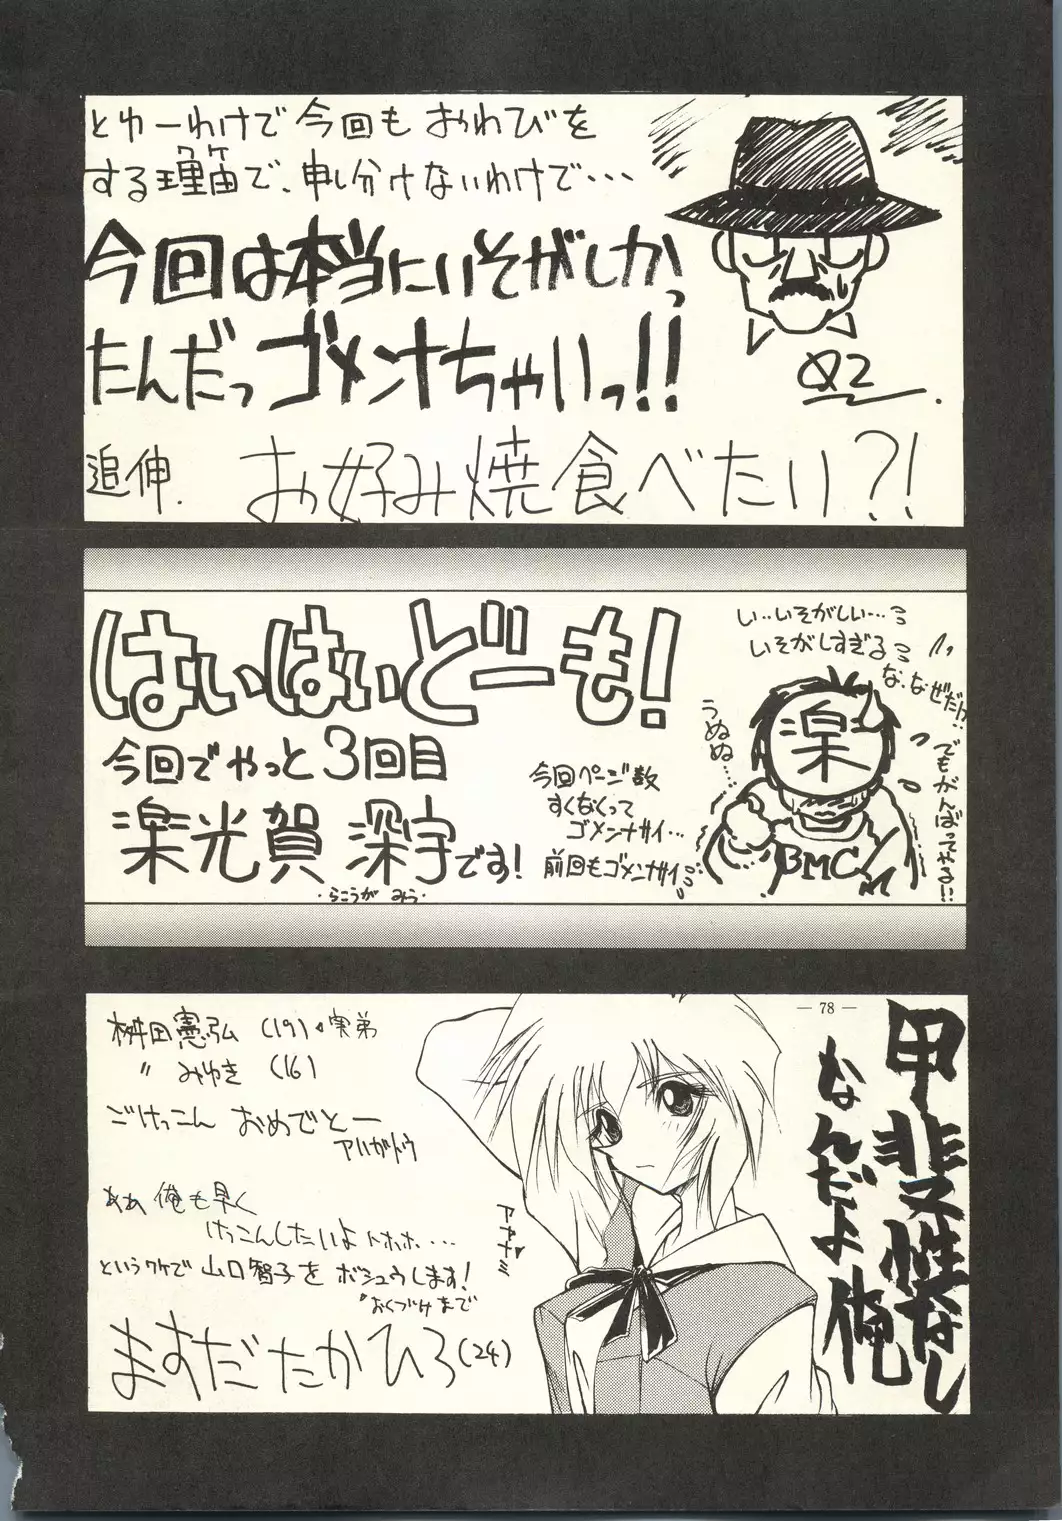 とゆーわけで今回もおわびを
する理由で、申し分けないわけで…
ワケ
今回は本当にいそがしかっ
たんだっゴメンナちゃいっ!!
追伸.
お好み焼食べたい?!
はいはいどーも!
今回でやっと3回目
楽光賀 深宇です!
・らこうが みう・
今回ページ数
すくなくって
ゴメンナサイ…
前回もゴメンナサイ…
い‥いそがしい…
いそがしすぎる
な、なぜだ!?
うぬぬ…
でもがんばってやる!!
楽
BMC
桝田憲弘 (19)・実弟
〃 みゆき (16)
ごけっこん おめでとー
アリガトウ
ああ 俺も早く
けっこんしたいよ トホホ…
というワケで 山口智子を ボシュウします!
おくづけまで
ますだたかひろ(24)
アヤナミ
— 78 —
甲斐性なし
なんだよ俺